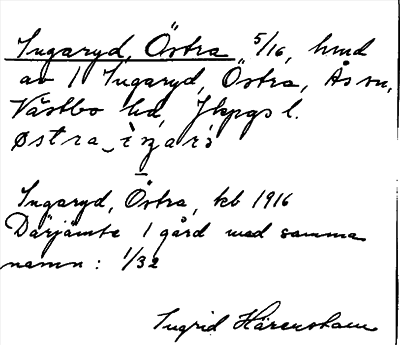 Ingaryd, Östra 5/16, hmd
av 1 Ingaryd, Östra, Ås sn,
Västbo hd, Jkpgs l.
østra ìŋari
Ingaryd, Östra, kb 1916
Därjämte 1 gård med samma
namn: 1/32
Ingrid Härenstam